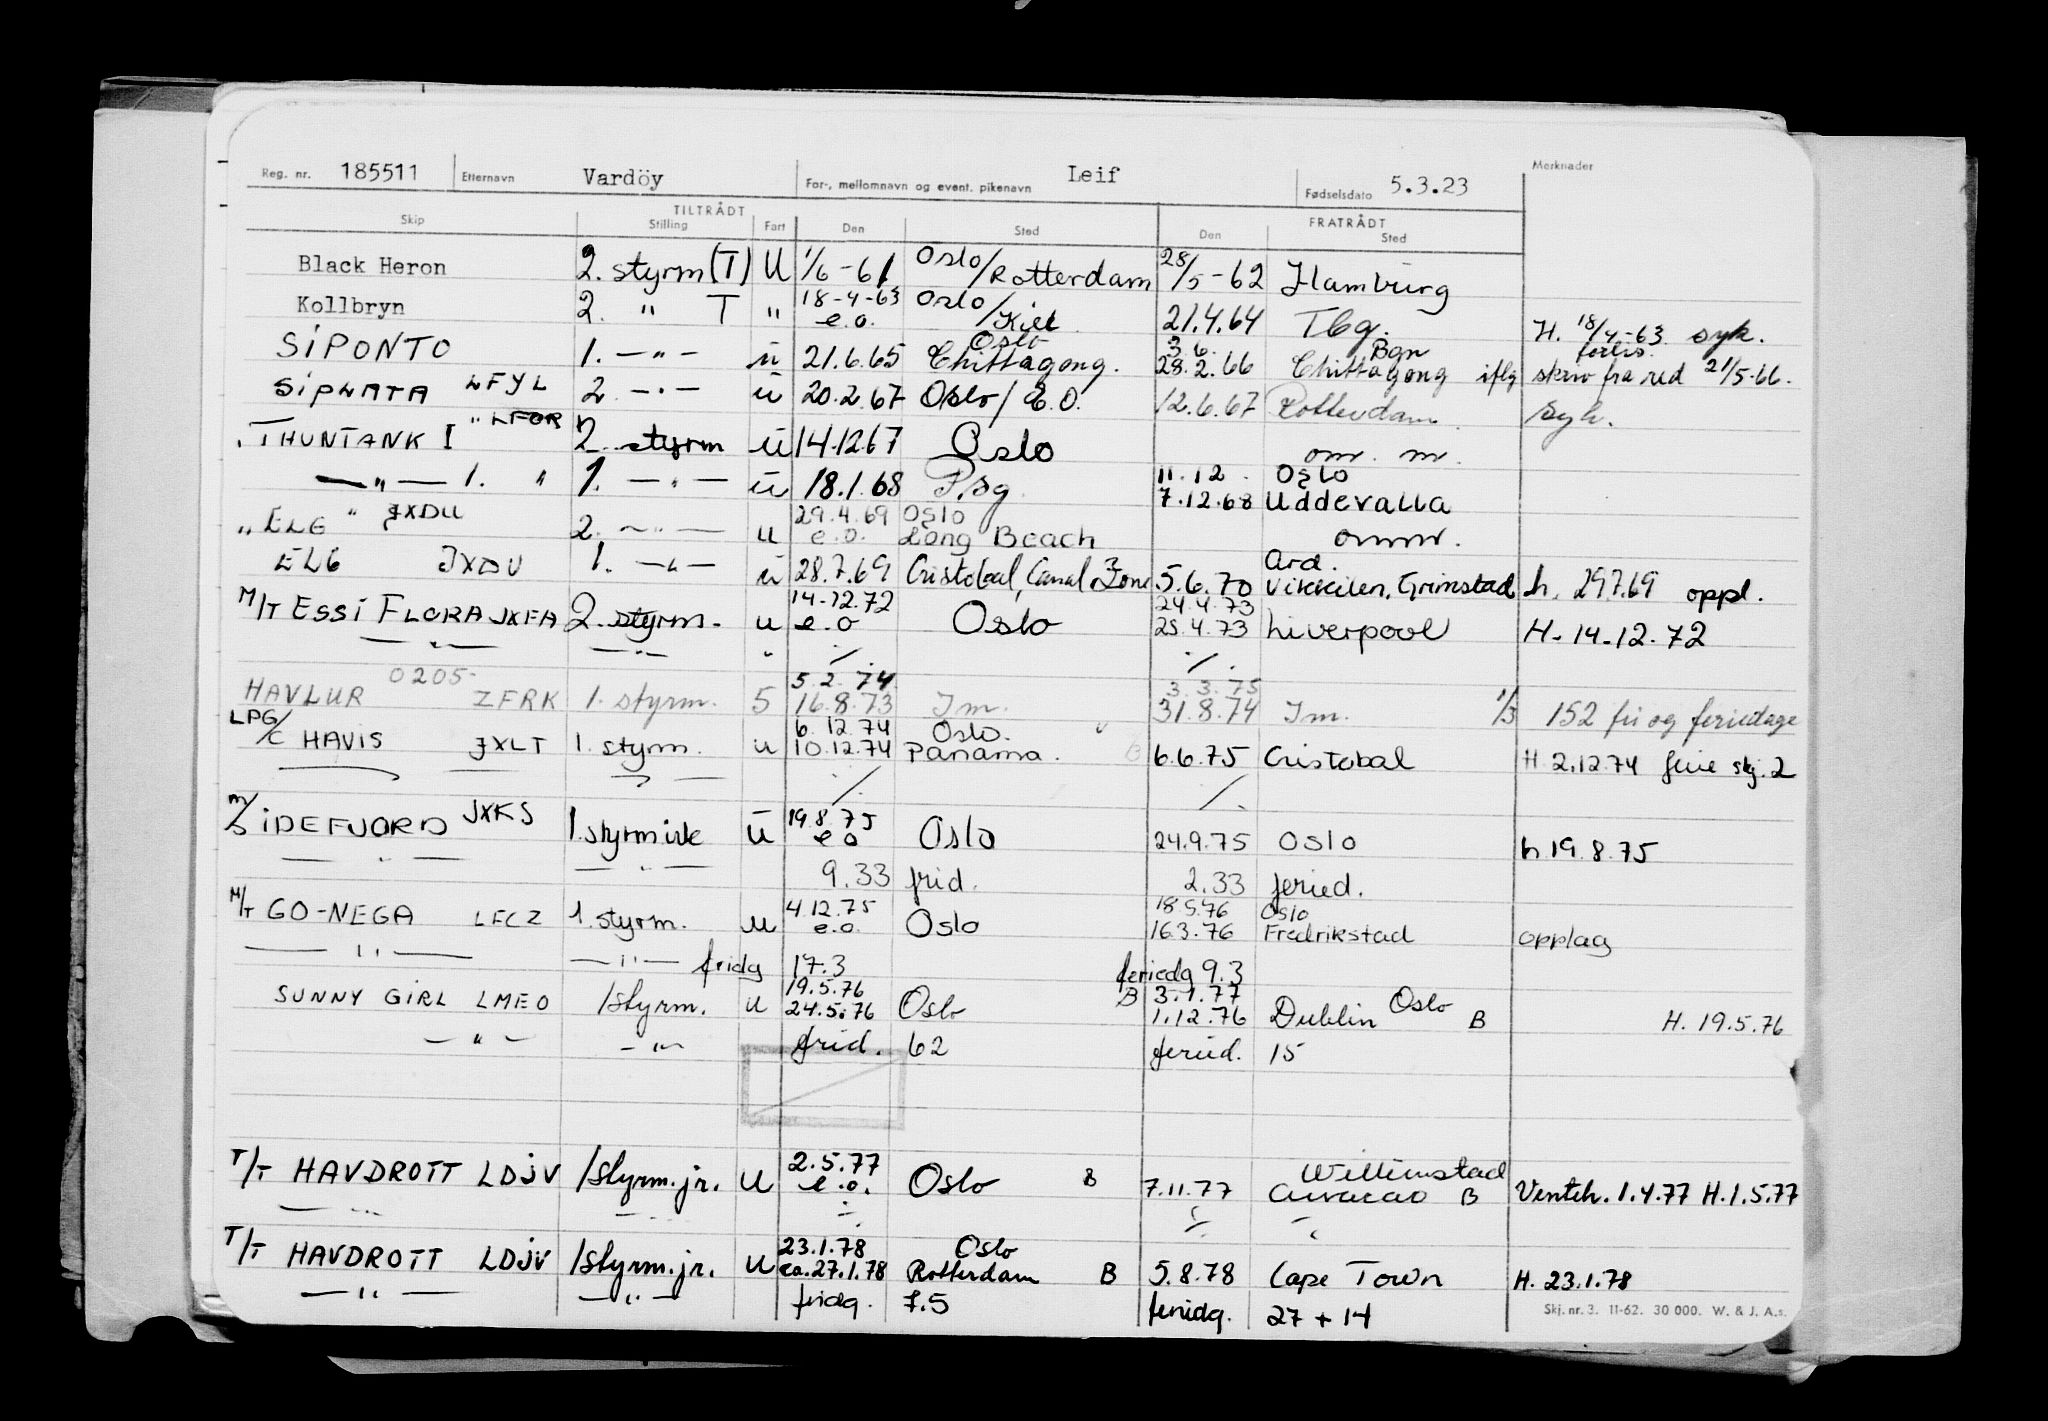 Reg. nr. 185511 Etternavn Vardöy For-, mellomnavn og event. pikenavn Leif Fødselsdato 5.3.23 Merknader
TILTRÅDT FRATRÅDT
Skip Stilling Fart Den Sted Den Sted
Black Heron 2. styrm (T) U 1/6-61 Oslo/Rotterdam 28/5-62 Hamburg
Kollbryn 2. " T " 18-4-63 e.o. Oslo/Kiel 21.4.64 Tbg. H. 18/4-63 syk.
SIPONTO 1. -"- ü 21.6.65 Oslo Chittagong. 3.6. 28.2.66 Bgn Chittagong iflg skriv fra red 21/5-66.
SIPLATA LFYL 2. -"- ü 20.2.67 Oslo/E.O. 12.6.67 Rotterdam. Syk.
THUNTANK I " LFOR 2. styrm ü 14.12.67 Oslo om. m.
-"- 1. " 1. -"- ü 18.1.68 P.sg. 11.12. 7.12.68 Oslo Uddevalla
"ELG" JXDU 2. -"- u 29.4.69 e.o. Oslo Long Beach omm.
ELG JXDU 1. -"- ü 28.7.69 Cristobal, Canal Zone 5.6.70 Ard. Vikkilen, Grimstad h. 29.7.69 oppl.
M/T ESSI FLORA JXFA 2. styrm. u 14-12.72 e.o Oslo 24.4.73 25.4.73 Liverpool H. 14-12.72
-"- -"- " ./. ./.
0205 5.2.74 3.3.75
HAVLUR ZFRK 1. styrm. 5 16.8.73 Im. 31.8.74 Im. 1/3 152 fri og feriedage
LPG/C HAVIS JXLT 1. styrm. u 6.12.74 10.12.74 Oslo. Panama. B 6.6.75 Cristobal H. 2.12.74 ferie skj. 2
./. ./.
M/S IDEFJORD JXKS 1. styrm vik ü 19.8.75 e o Oslo 24.9.75 Oslo h 19.8.75
-"- -"- 9.33 frid. 2.33 feried.
M/T GO-NEGA LFCZ 1. styrm. u 4.12.75 e.o. Oslo 18.5.76 16.3.76 Oslo Fredrikstad opplag
-"- -"- fridg 17.3 feriedg 9.3
SUNNY GIRL LMEO 1styrm. u 19.5.76 24.5.76 Oslo B 3.1.77 1.12.76 Dublin Oslo B H. 19.5.76
-"- -"- frid. 62 feried. 15
T/T HAVDROTT LDJV 1styrm. jr. U 2.5.77 e.o. Oslo B 7.11.77 Willemstad Curacao B Venteh. 1.4.77 H. 1.5.77
T/T HAVDROTT LDJV 1styrm. jr. U 23.1.78 ca. 27.1.78 Oslo Rotterdam B 5.8.78 Cape Town H. 23.1.78
-"- -"- fridg. 7.5 feriedg. 27 + 14
Skj. nr. 3. 11-62. 30 000. W. & J. A.s.